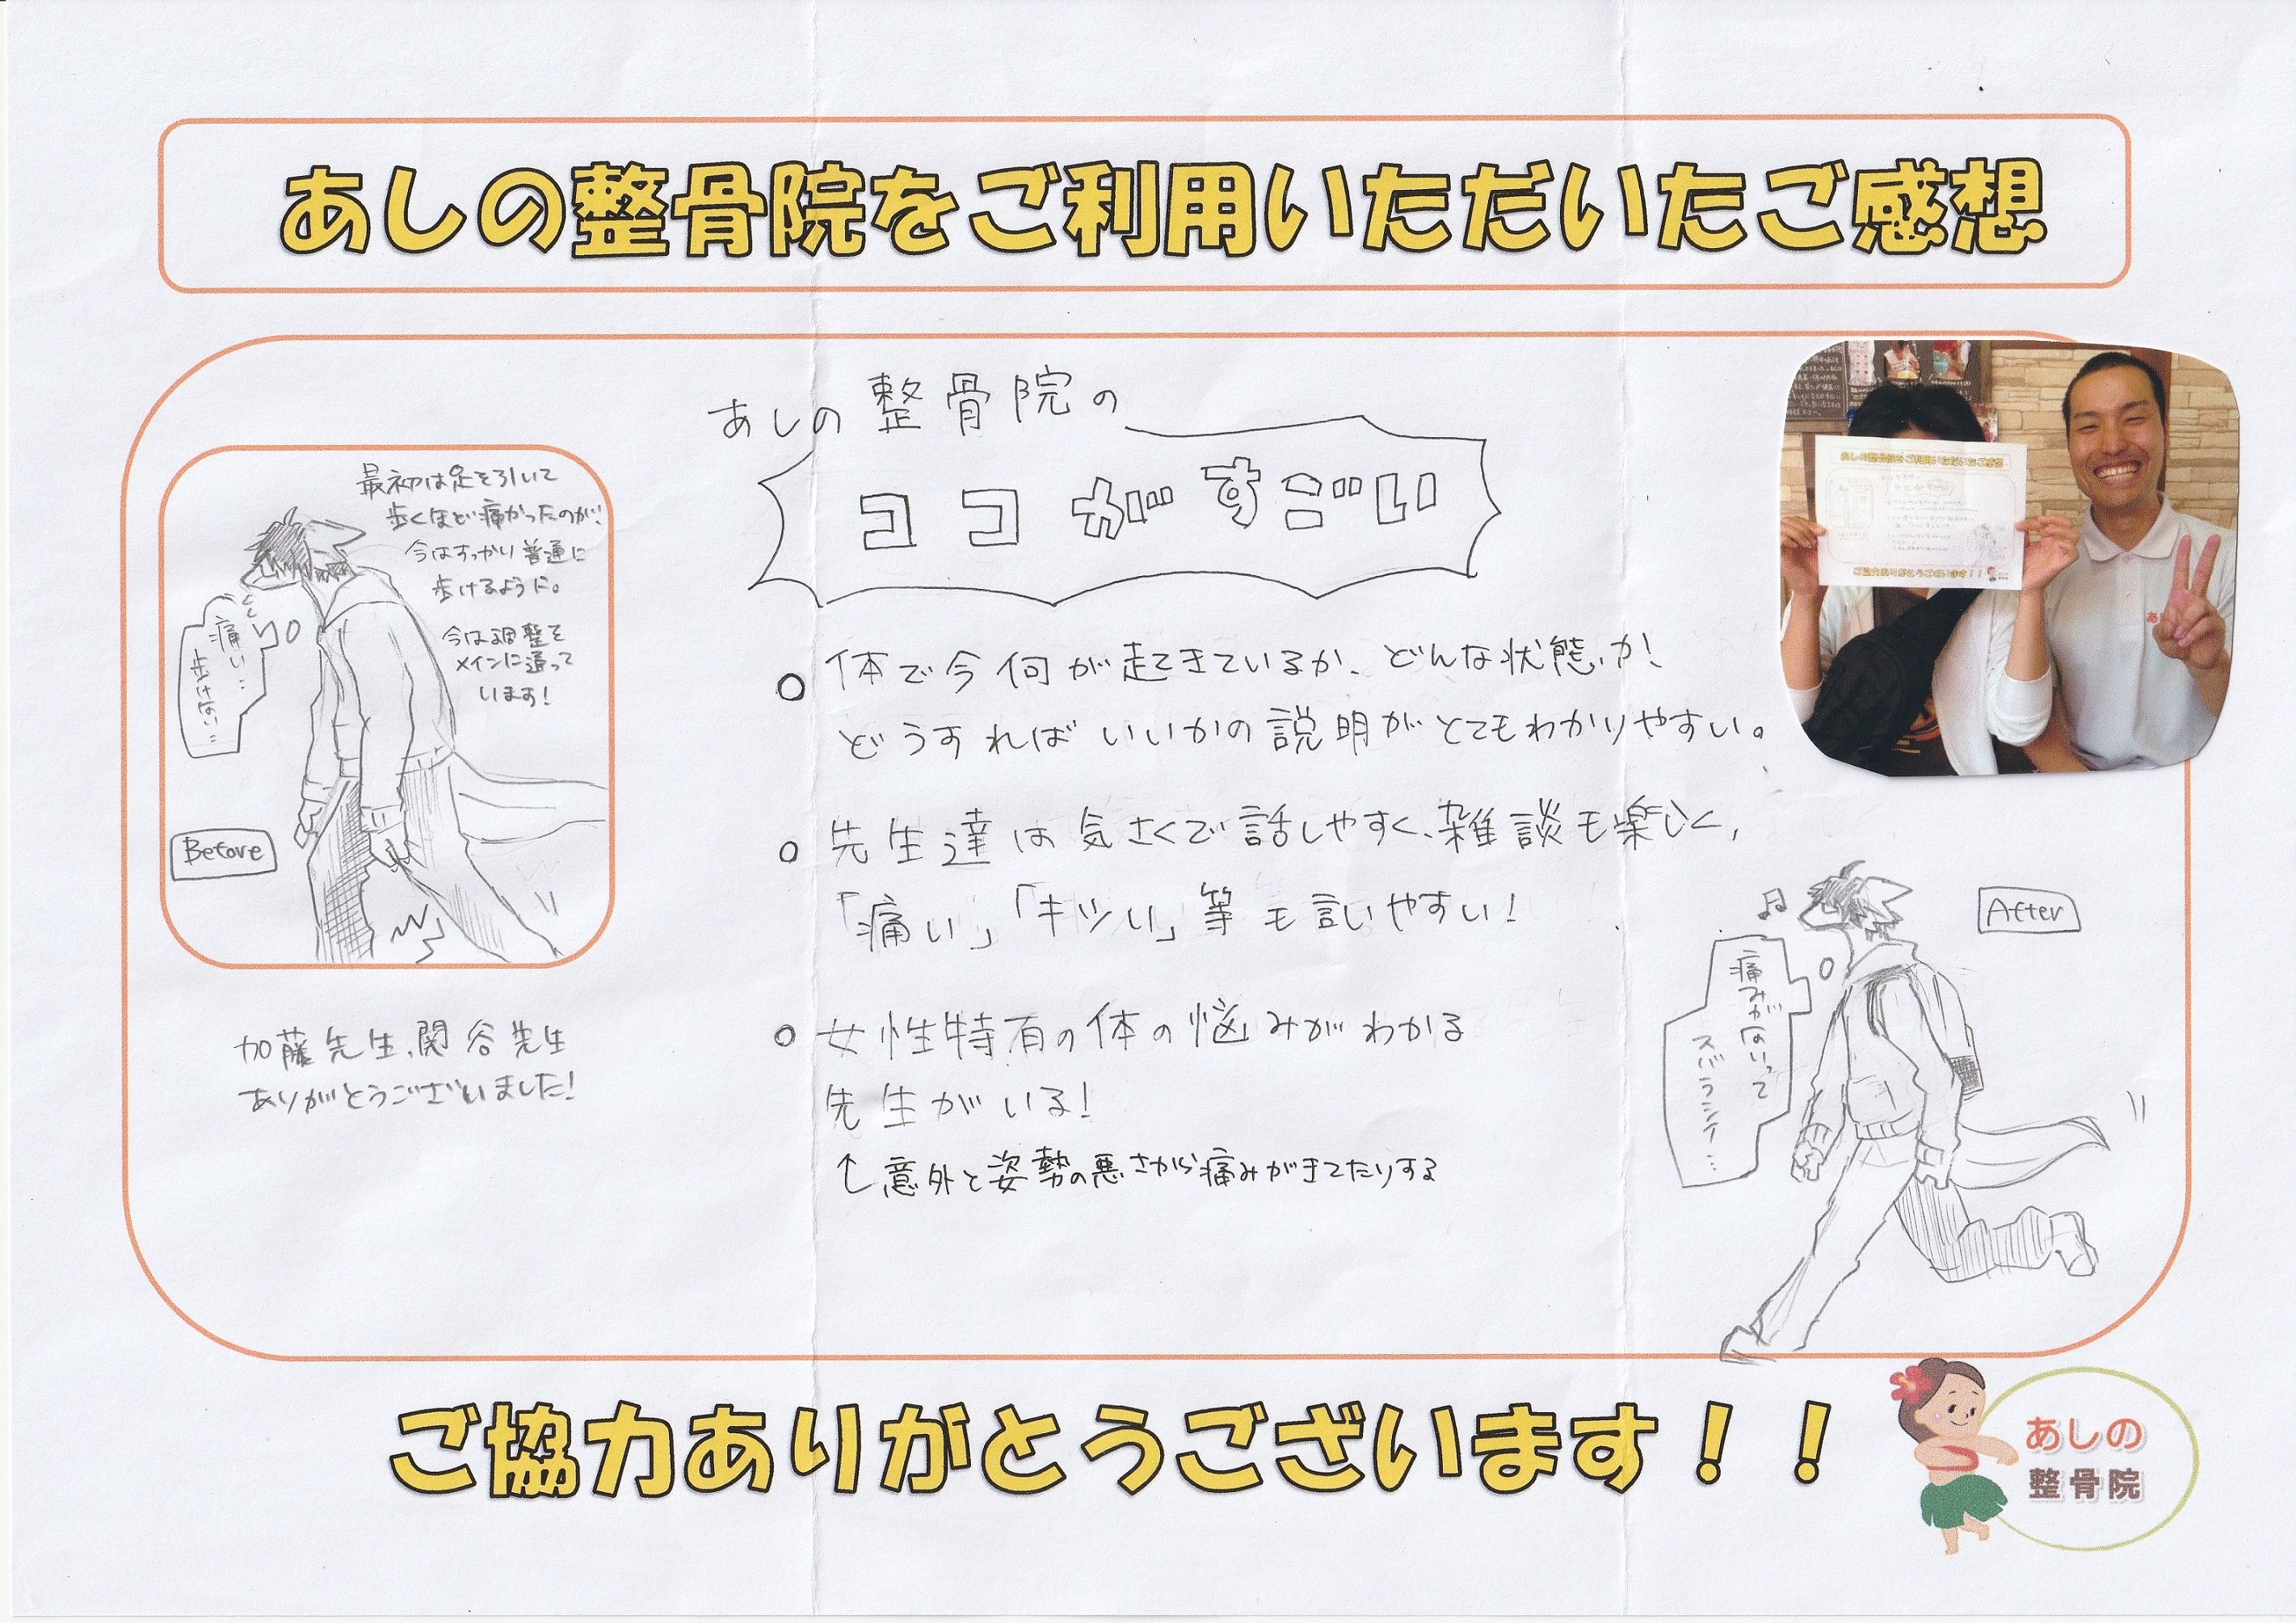 あしの整骨院をご利用いただいたご感想
最初は足を引いて
歩くほど痛かったのが、
今はすっかり普通に
歩けるように。
今は調整を
メインに通って
います!
痛い…
歩けない…
Before
加藤先生、関谷先生
ありがとうございました!
あしの整骨院の
ココがすごい
○体で今何が起きているか、どんな状態か!
どうすればいいかの説明がとてもわかりやすい。
○先生達は気さくで話しやすく、雑談も楽しく、
「痛い」「キツい」等も言いやすい!
○女性特有の体の悩みがわかる
先生がいる!
↑意外と姿勢の悪さから痛みがきてたりする
After
♪
痛みがないって
スバラシイ…
ご協力ありがとうございます!!
あしの
整骨院